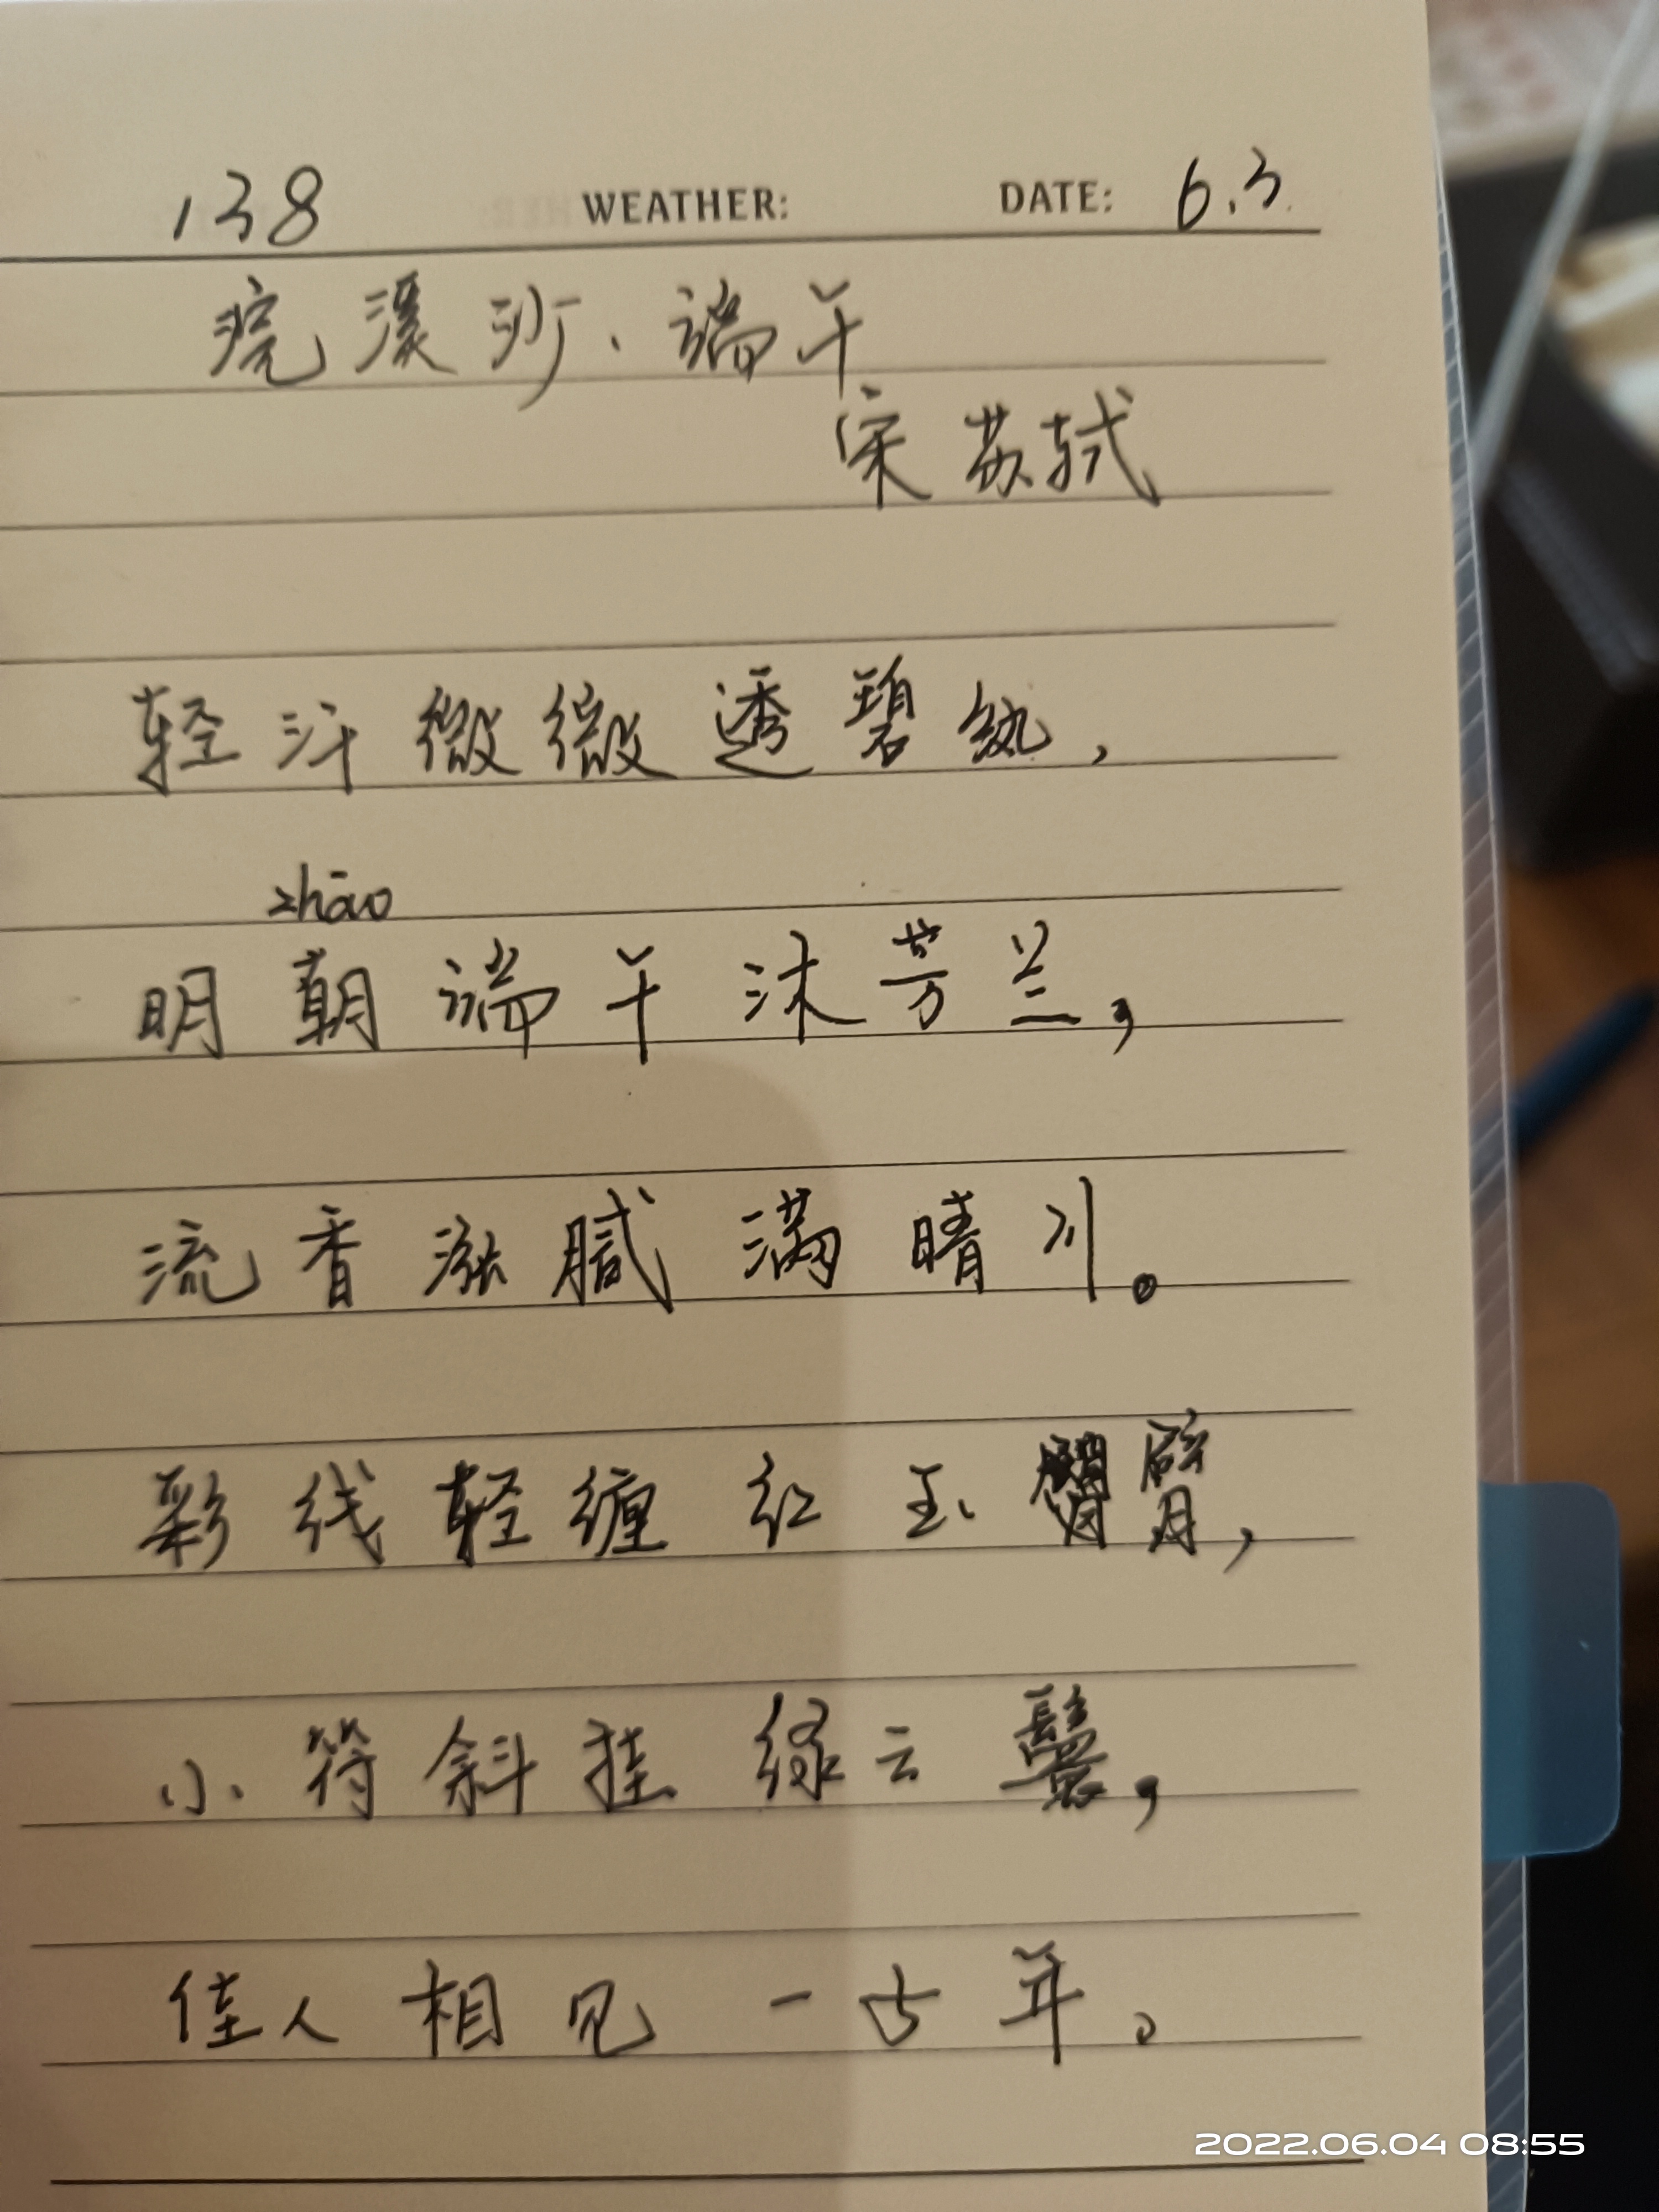 138 WEATHER: DATE: 6.3
浣溪沙·端午
宋 苏轼
轻汗微微透碧纨,
zhāo
明朝端午沐芳兰,
流香涨腻满晴川。
彩线轻缠红玉臂,
小符斜挂绿云鬟,
佳人相见一千年。
2022.06.04 08:55